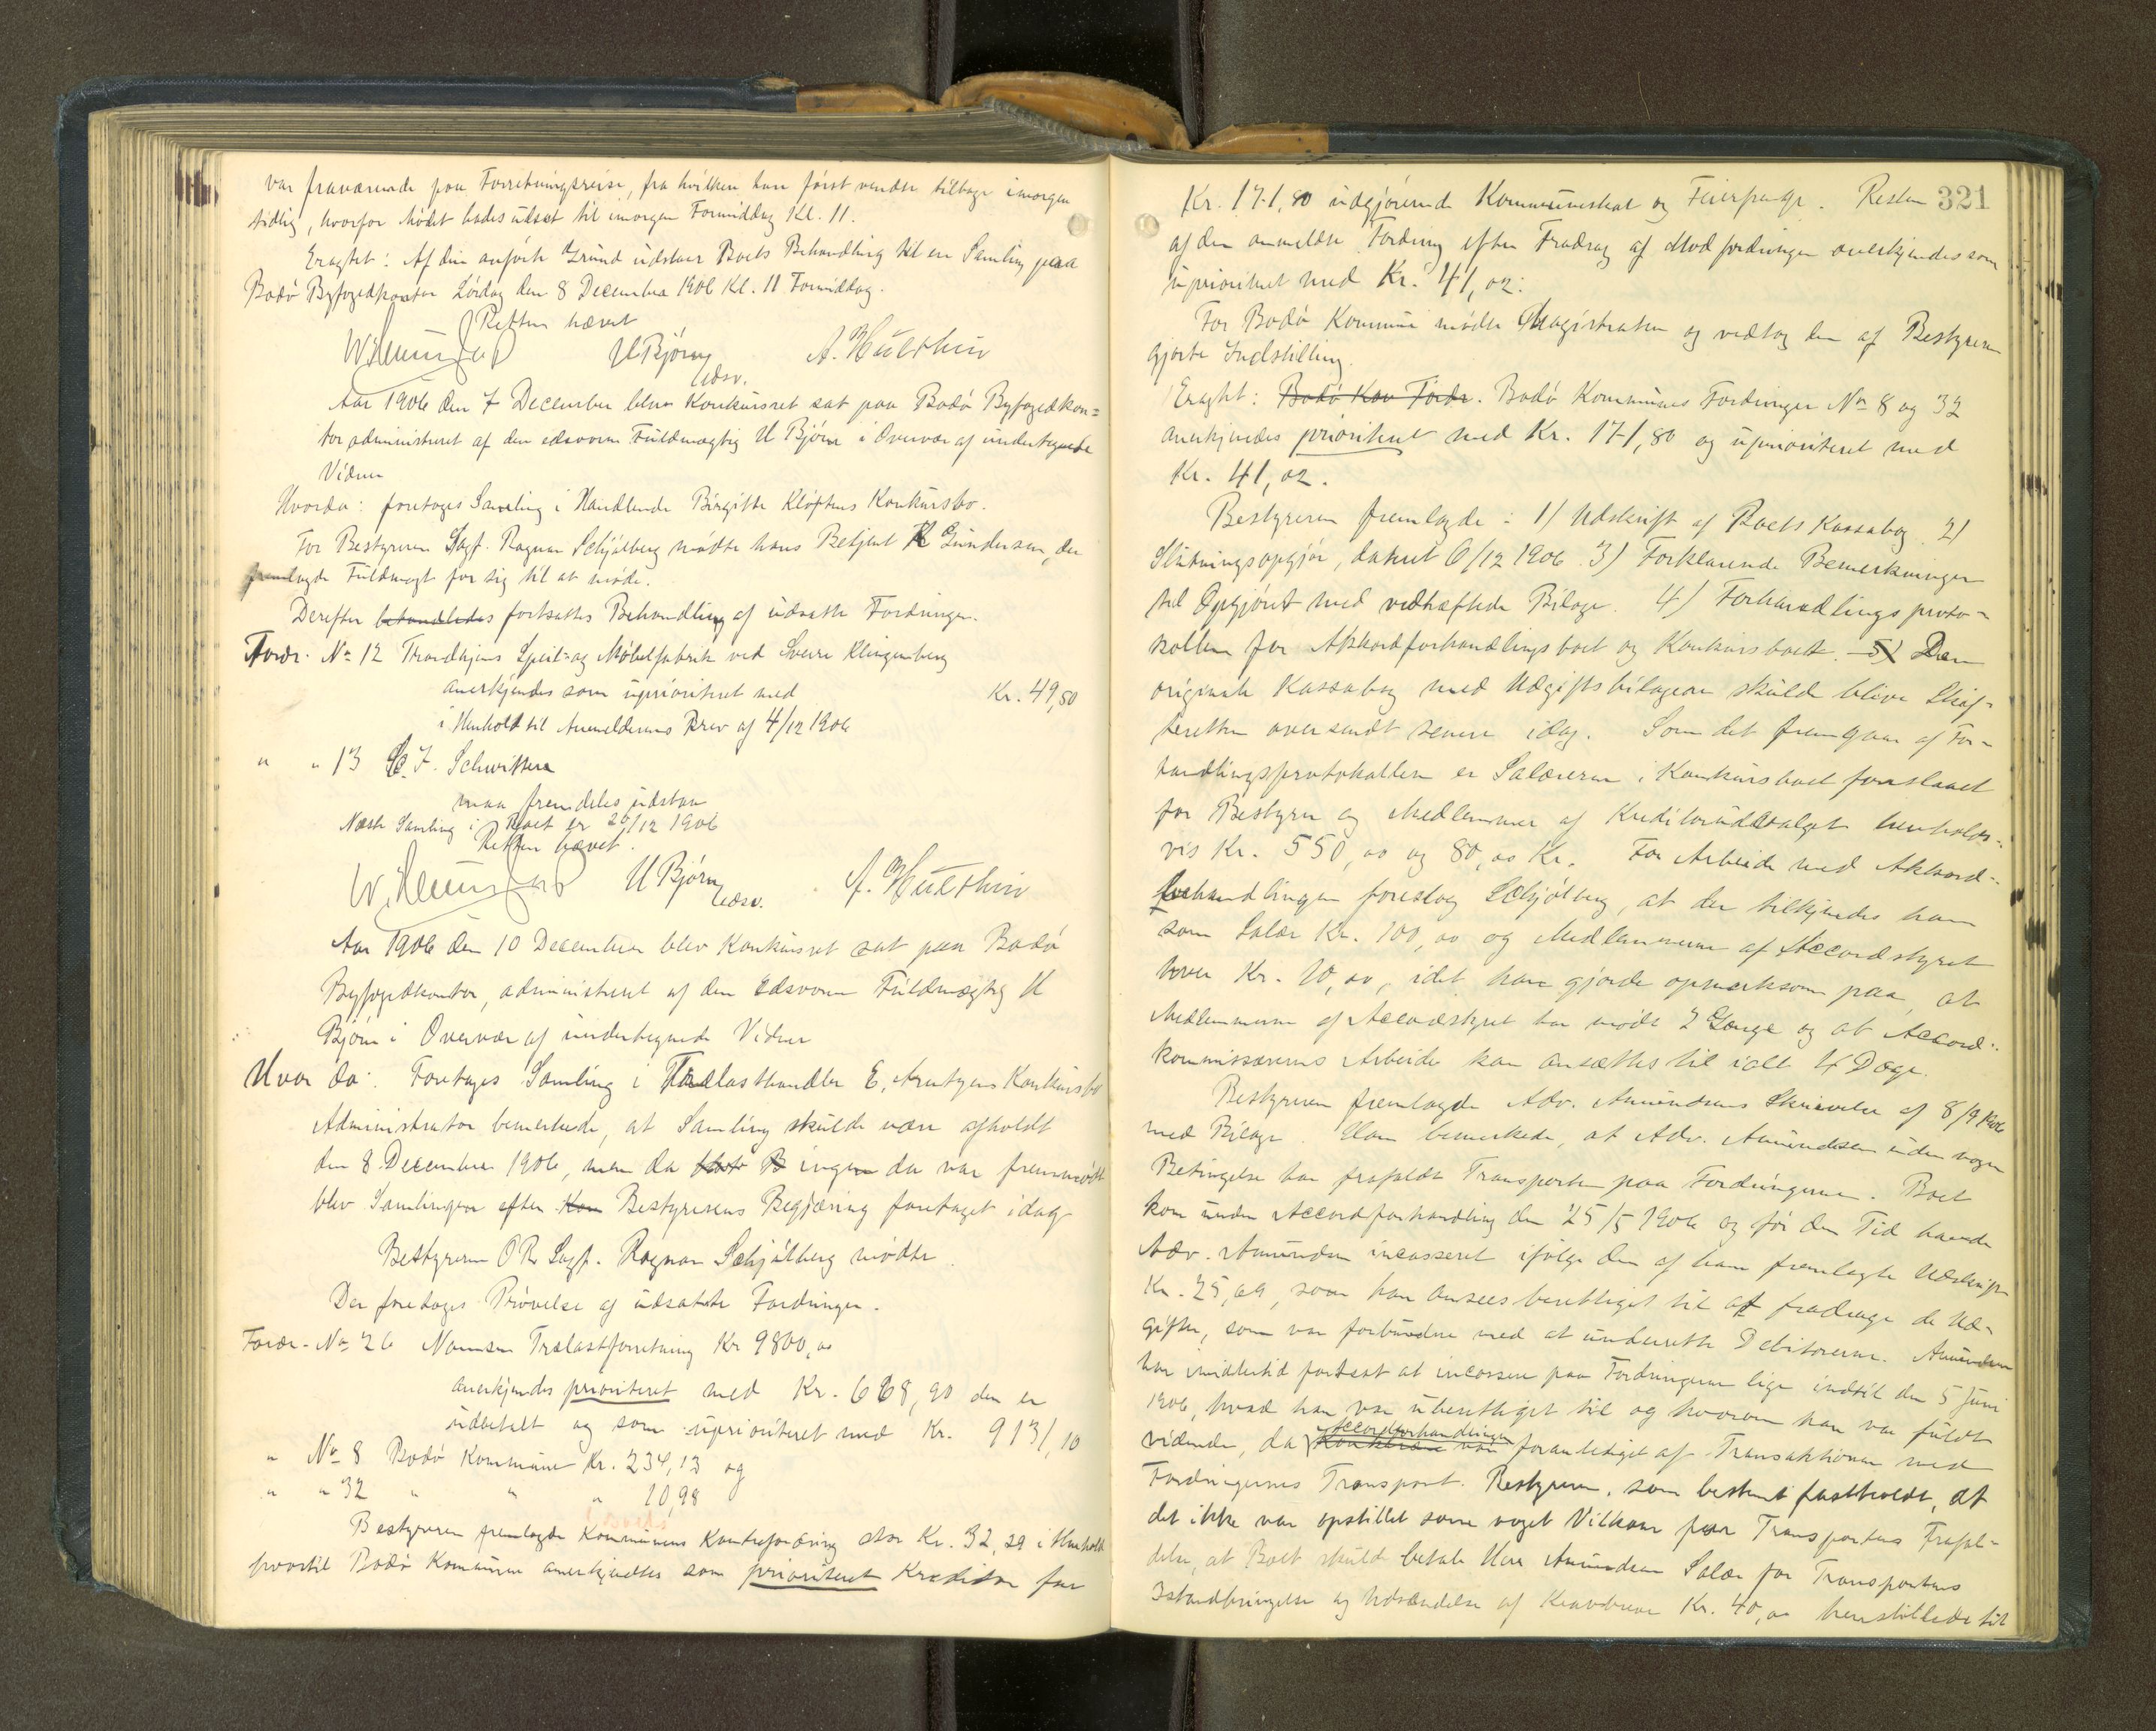 var fraværende paa Forretningsreise, fra hvilken han først vender tilbage imorgen
tidlig, hvorfor Mødet bades udsat til imorgen Formiddag Kl. 11.
Eragtet: Af den anførte Grund udstaar Boets Behandling til en Samling paa
Bodø Byfogedkontor Lørdag den 8 December 1906 Kl. 11 Formiddag.
Retten hævet
U Bjørn
A. Hulthin
edsv.
Aar 1906 den 7 December blev Konkursret sat paa Bodø Byfogedkon=
tor administreret af den edsvorne Fuldmægtig U Bjørn i Overvær af undertegnede
Vidner
Hvorda: foretoges Samling i Handlende Birgitte Kløftens Konkursbo.
For Bestyreren Sagf. Ragnar Schjølberg mødte hans Betjent K Gundersen, der
fremlagde Fuldmagt for sig til at møde.
Derefter behandledes fortsattes Behandling af udsatte Fordringer.
Fordr. No 12 Trondhjems Speil- og Møbelfabrik ved Sverre Klingenberg
anerkjendes som uprioriteret med Kr. 49,50
i Henhold til Anmelderens Brev af 4/12 1906
" " 13 C. F. Schwitters
maa fremdeles udstaa
Næste Samling i Boet er 20/12 1906
Retten hævet.
U Bjørn
edsv.
A. Hulthin
Aar 1906 den 10 December blev Konkursret sat paa Bodø
Byfogedkontor, administreret af den edsvorne Fuldmægtig U
Bjørn i Overvær af undertegnede Vidner
Hvor da: Foretoges Samling i Trælasthandler E. Arntzens Konkursbo
Administrator bemerkede, at Samling skulde være afholdt
den 8 December 1906, men da B ingen da var fremmødt
blev Samlingen efter Kon Bestyrerens Begjæring foretaget idag
Bestyreren O R Sagf. Ragnar Schjølberg mødte.
Der foretoges Prøvelse af udsatte Fordringer.
Fordr. No 26 Namsen Trælastforretning Kr 9800,00
anerkjendes prioriteret med Kr. 668,90 den er
udbetalt og som uprioriteret med Kr. 9131,10
" No 8 Bodø Kommune Kr. 234,13 og
" " 32 " " " 10,98
Bestyreren fremlagde Kommunens Kontrafordring stor Kr. 32,29 i Henhold
hvortil Bodø Kommune anerkjendtes som prioriteret Kreditor for
321
Kr. 171,80 udgjørende Kommuneskat og Feierpenge. Resten
af den anmeldte Fordring efter Fradrag af Modfordringen anerkjendes som
uprioriteret med Kr. 41,02.
For Bodø Kommune mødte Magistraten og vedtog den af Bestyreren
gjorte Indstilling.
Eragtet: Bodø Kom Fordr. Bodø Kommunes Fordringer No 8 og 32
anerkjendes prioriteret med Kr. 171,80 og uprioriteret med
Kr. 41,02.
Bestyreren fremlagde: 1) Udskrift af Boets Kassabog 2)
Slutningsopgjør, dateret 6/12 1906 3) Forklarende Bemerkninger
til Opgjøret med vedhæftede Bilage. 4) Forhandlingsproto-
kollen for Akkordforhandlingsboet og Konkursboet. 5) Den
originale Kassabog med Udgiftsbilagene skulde blive Skif-
teretten oversendt senere idag. Som det fremgaar af For-
handlingsprotokollen er Salærerne i Konkursboet foreslaaet
for Bestyrer og Medlemmer af Kreditorudvalget henholds-
vis Kr. 550,00 og 80,00 Kr. For Arbeide med Akkord-
behandlingen foreslog Schjølberg, at der tilkjendes ham
som Salær Kr. 100,00 og Medlemmerne af Accordstyret
hver Kr. 10,00, idet han gjorde opmerksom paa, at
Medlemmerne af Accordstyret har mødt 2 Gange og at Accord-
kommissærens Arbeide kan ansættes til ialt 4 Dage.
Bestyreren fremlagde Adv. Amundsens Skrivelse af 8/9 1906
med Bilage. Han bemerkede, at Adv. Amundsen uden nogen
Betingelse har frafaldt Transporten paa Fordringerne. Boet
kom under Accordforhandling den 25/5 1906 og før den Tid havde
Adv. Amundsen incasseret ifølge den af ham fremlagte Udskrift
Kr. 25,69, som han ansees berettiget til at fradrage de Ud-
gifter, som var forbundne med at underrette Debitorerne. Amundsen
har imidlertid fortsat at incassere paa Fordringerne lige indtil den 5 Juni
1906, hvad han var uberettiget til og hvorom han var fuldt
Accordforhandlingen
vidende, da Konkursen var foranlediget af Transaktionen med
Fordringernes Transport. Bestyreren, som bestemt fastholdt, at
det ikke var opstillet som noget Vilkaar for Transportens Frafal-
delse, at Boet skulde betale Herr Amundsen Salær for Transportens
Istandbringelse og Udsendelse af Kravbreve Kr. 40,00 henstillede til